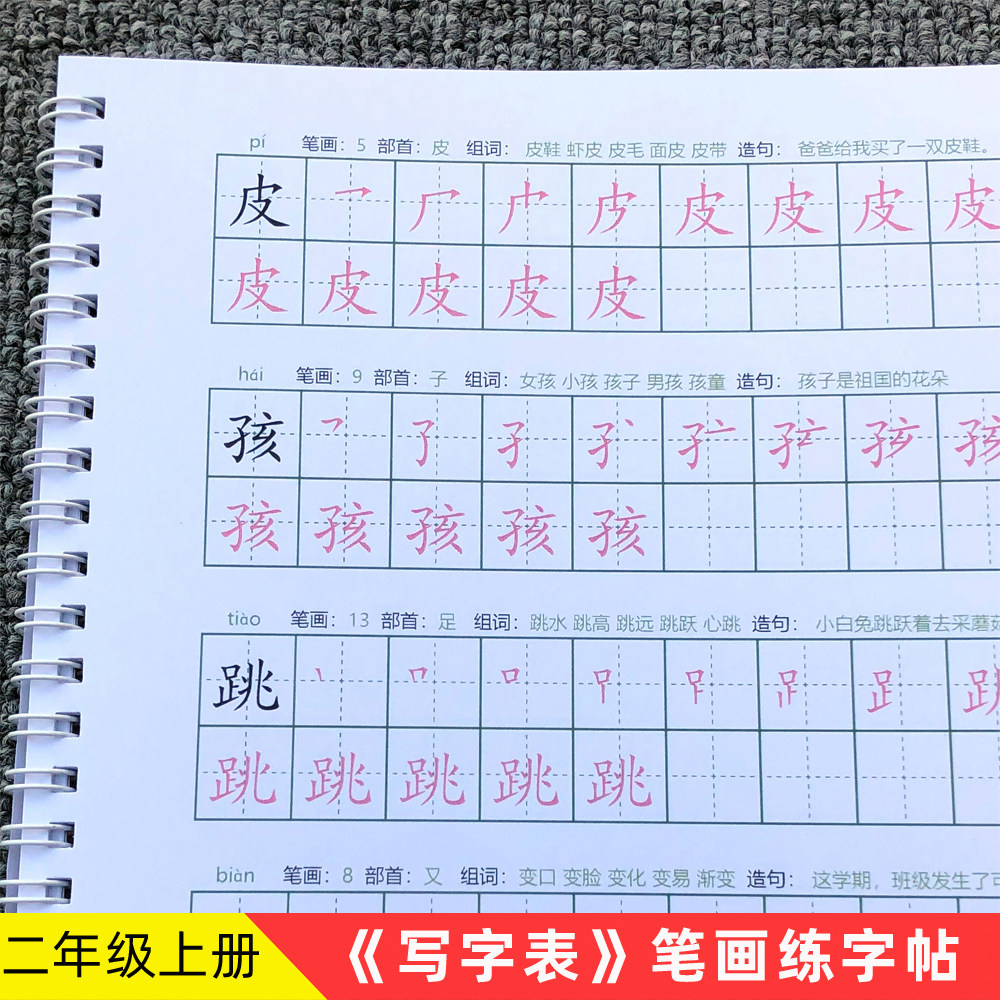 pí 笔画：5 部首：皮 组词： 皮鞋 虾皮 皮毛 面皮 皮带 造句： 爸爸给我买了一双皮鞋。
皮 皮 皮 皮 皮 皮
皮 皮 皮 皮 皮
hái 笔画：9 部首：子 组词：女孩 小孩 孩子 男孩 孩童 造句： 孩子是祖国的花朵
孩 孩
孩 孩 孩 孩 孩
tiào 笔画：13 部首：足 组词：跳水 跳高 跳远 跳跃 心跳 造句： 小白兔跳跃着去采蘑
跳
跳 跳 跳 跳 跳
biàn 笔画：8 部首：又 组词：变口 变脸 变化 变易 渐变 造句： 这学期，班级发生了
二年级上册
《写字表》笔画练字帖